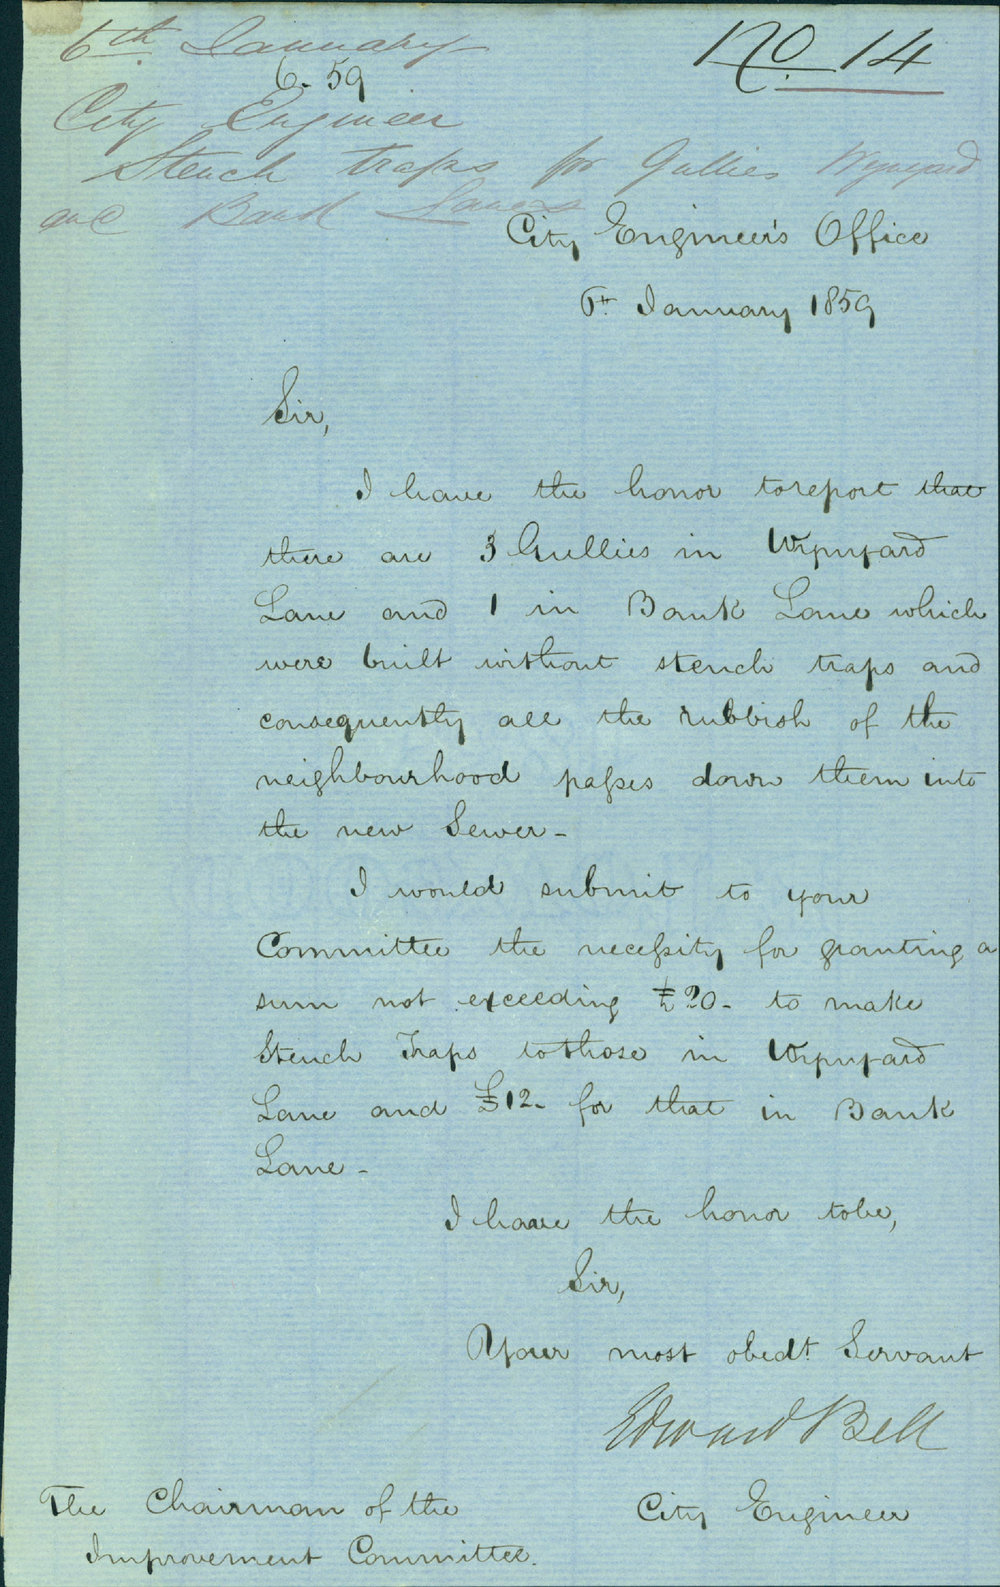 6th January
No. 14
6. 59
City Engineer
Stench traps for Gullies Wynyard
and Bank Lanes
City Engineer's Office
6th January 1859
Sir,
I have the honor to report that
there are 3 Gullies in Wynyard
Lane and 1 in Bank Lane which
were built without stench traps and
consequently all the rubbish of the
neighbourhood passes down them into
the new Sewer -
I would submit to your
Committee the necessity for granting a
sum not exceeding £20 - to make
Stench Traps to those in Wynyard
Lane and £12 - for that in Bank
Lane -
I have the honor to be,
Sir,
Your most obedt. Servant
Edward Bell
City Engineer
The Chairman of the
Improvement Committee.